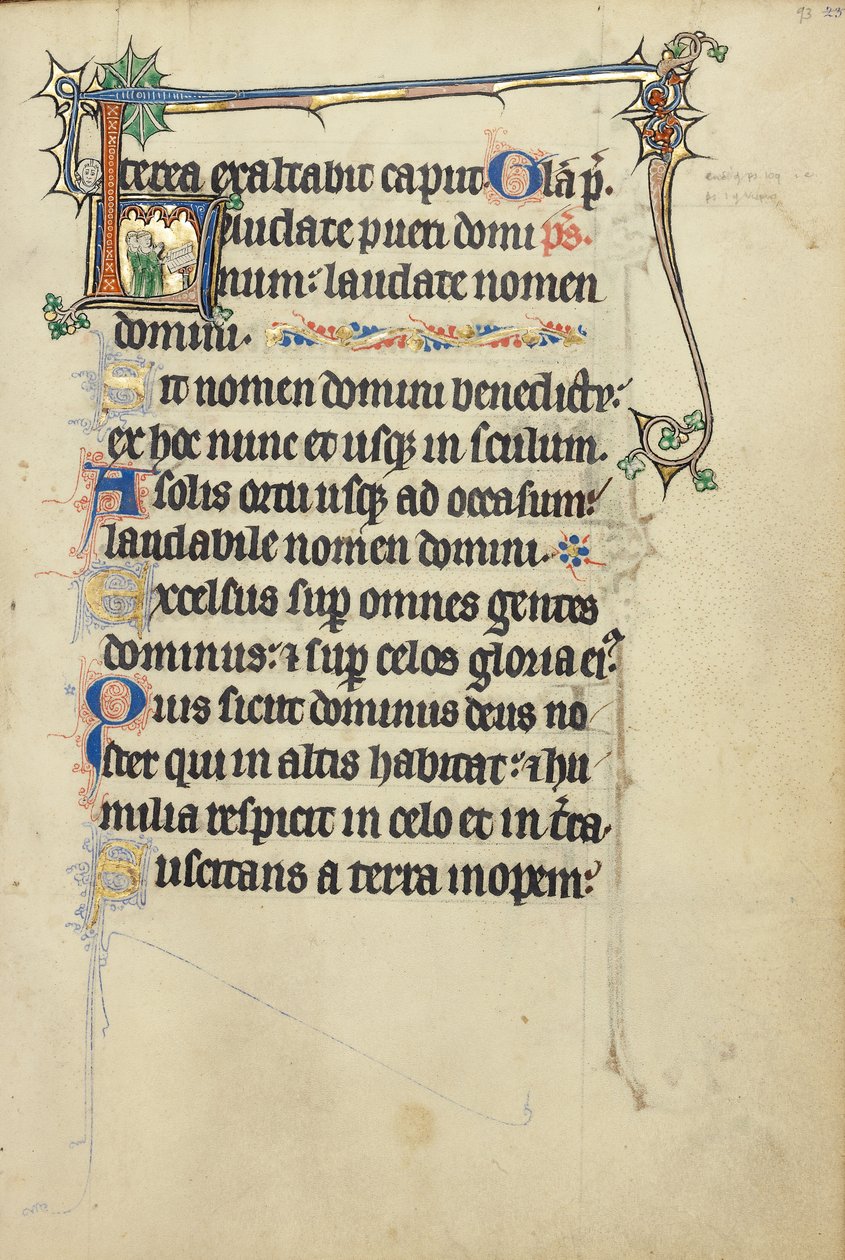 93 23
pterea exaltabit caput. Gla pr.
Leiudate pueri domi ps.
num: laudate nomen
domini.
Sit nomen domini benedictu:
ex hoc nunc et usq in sculum.
A solis ortu usq ad occasum:
laudabile nomen domini.
Excelsus sup omnes gentes
dominus: ⁊ sup celos gloria ei9
Quis sicut dominus deus no
ster qui in altis habitat: ⁊ hu
milia respicit in celo et in tra.
Suscitans a terra inopem: